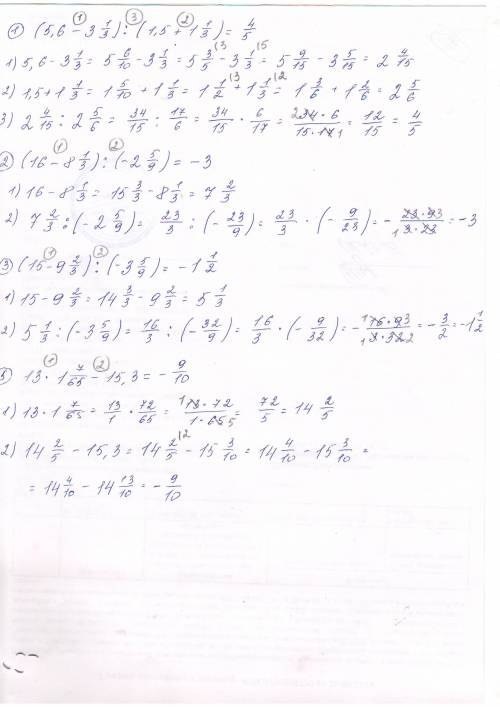 ① (5,6 − 3 1/3) : (1,5 + 1 1/3) = 4/5
1) 5,6 − 3 1/3 = 5 6/10 − 3 1/3 = 5 3/5 − 3 1/3 = 5 9/15 − 3 5/15 = 2 4/15
2) 1,5 + 1 1/3 = 1 5/10 + 1 1/3 = 1 1/2 + 1 1/3 = 1 3/6 + 1 2/6 = 2 5/6
3) 2 4/15 : 2 5/6 = 34/15 : 17/6 = 34/15 · 6/17 = 34·6/15·17 = 12/15 = 4/5
② (16 − 8 1/3) : (−2 5/9) = −3
1) 16 − 8 1/3 = 15 3/3 − 8 1/3 = 7 2/3
2) 7 2/3 : (−2 5/9) = 23/3 : (−23/9) = 23/3 · (−9/23) = −23·9/3·23 = −3
③ (15 − 9 2/3) : (−3 5/9) = −1 1/2
1) 15 − 9 2/3 = 14 3/3 − 9 2/3 = 5 1/3
2) 5 1/3 : (−3 5/9) = 16/3 : (−32/9) = 16/3 · (−9/32) = −16·9/3·32 = −3/2 = −1 1/2
⑤ 13 · 1 7/65 − 15,3 = −9/10
1) 13 · 1 7/65 = 13/1 · 72/65 = 13·72/1·65 = 72/5 = 14 2/5
2) 14 2/5 − 15,3 = 14 2/5 − 15 3/10 = 14 4/10 − 15 3/10 =
= 14 4/10 − 14 13/10 = −9/10